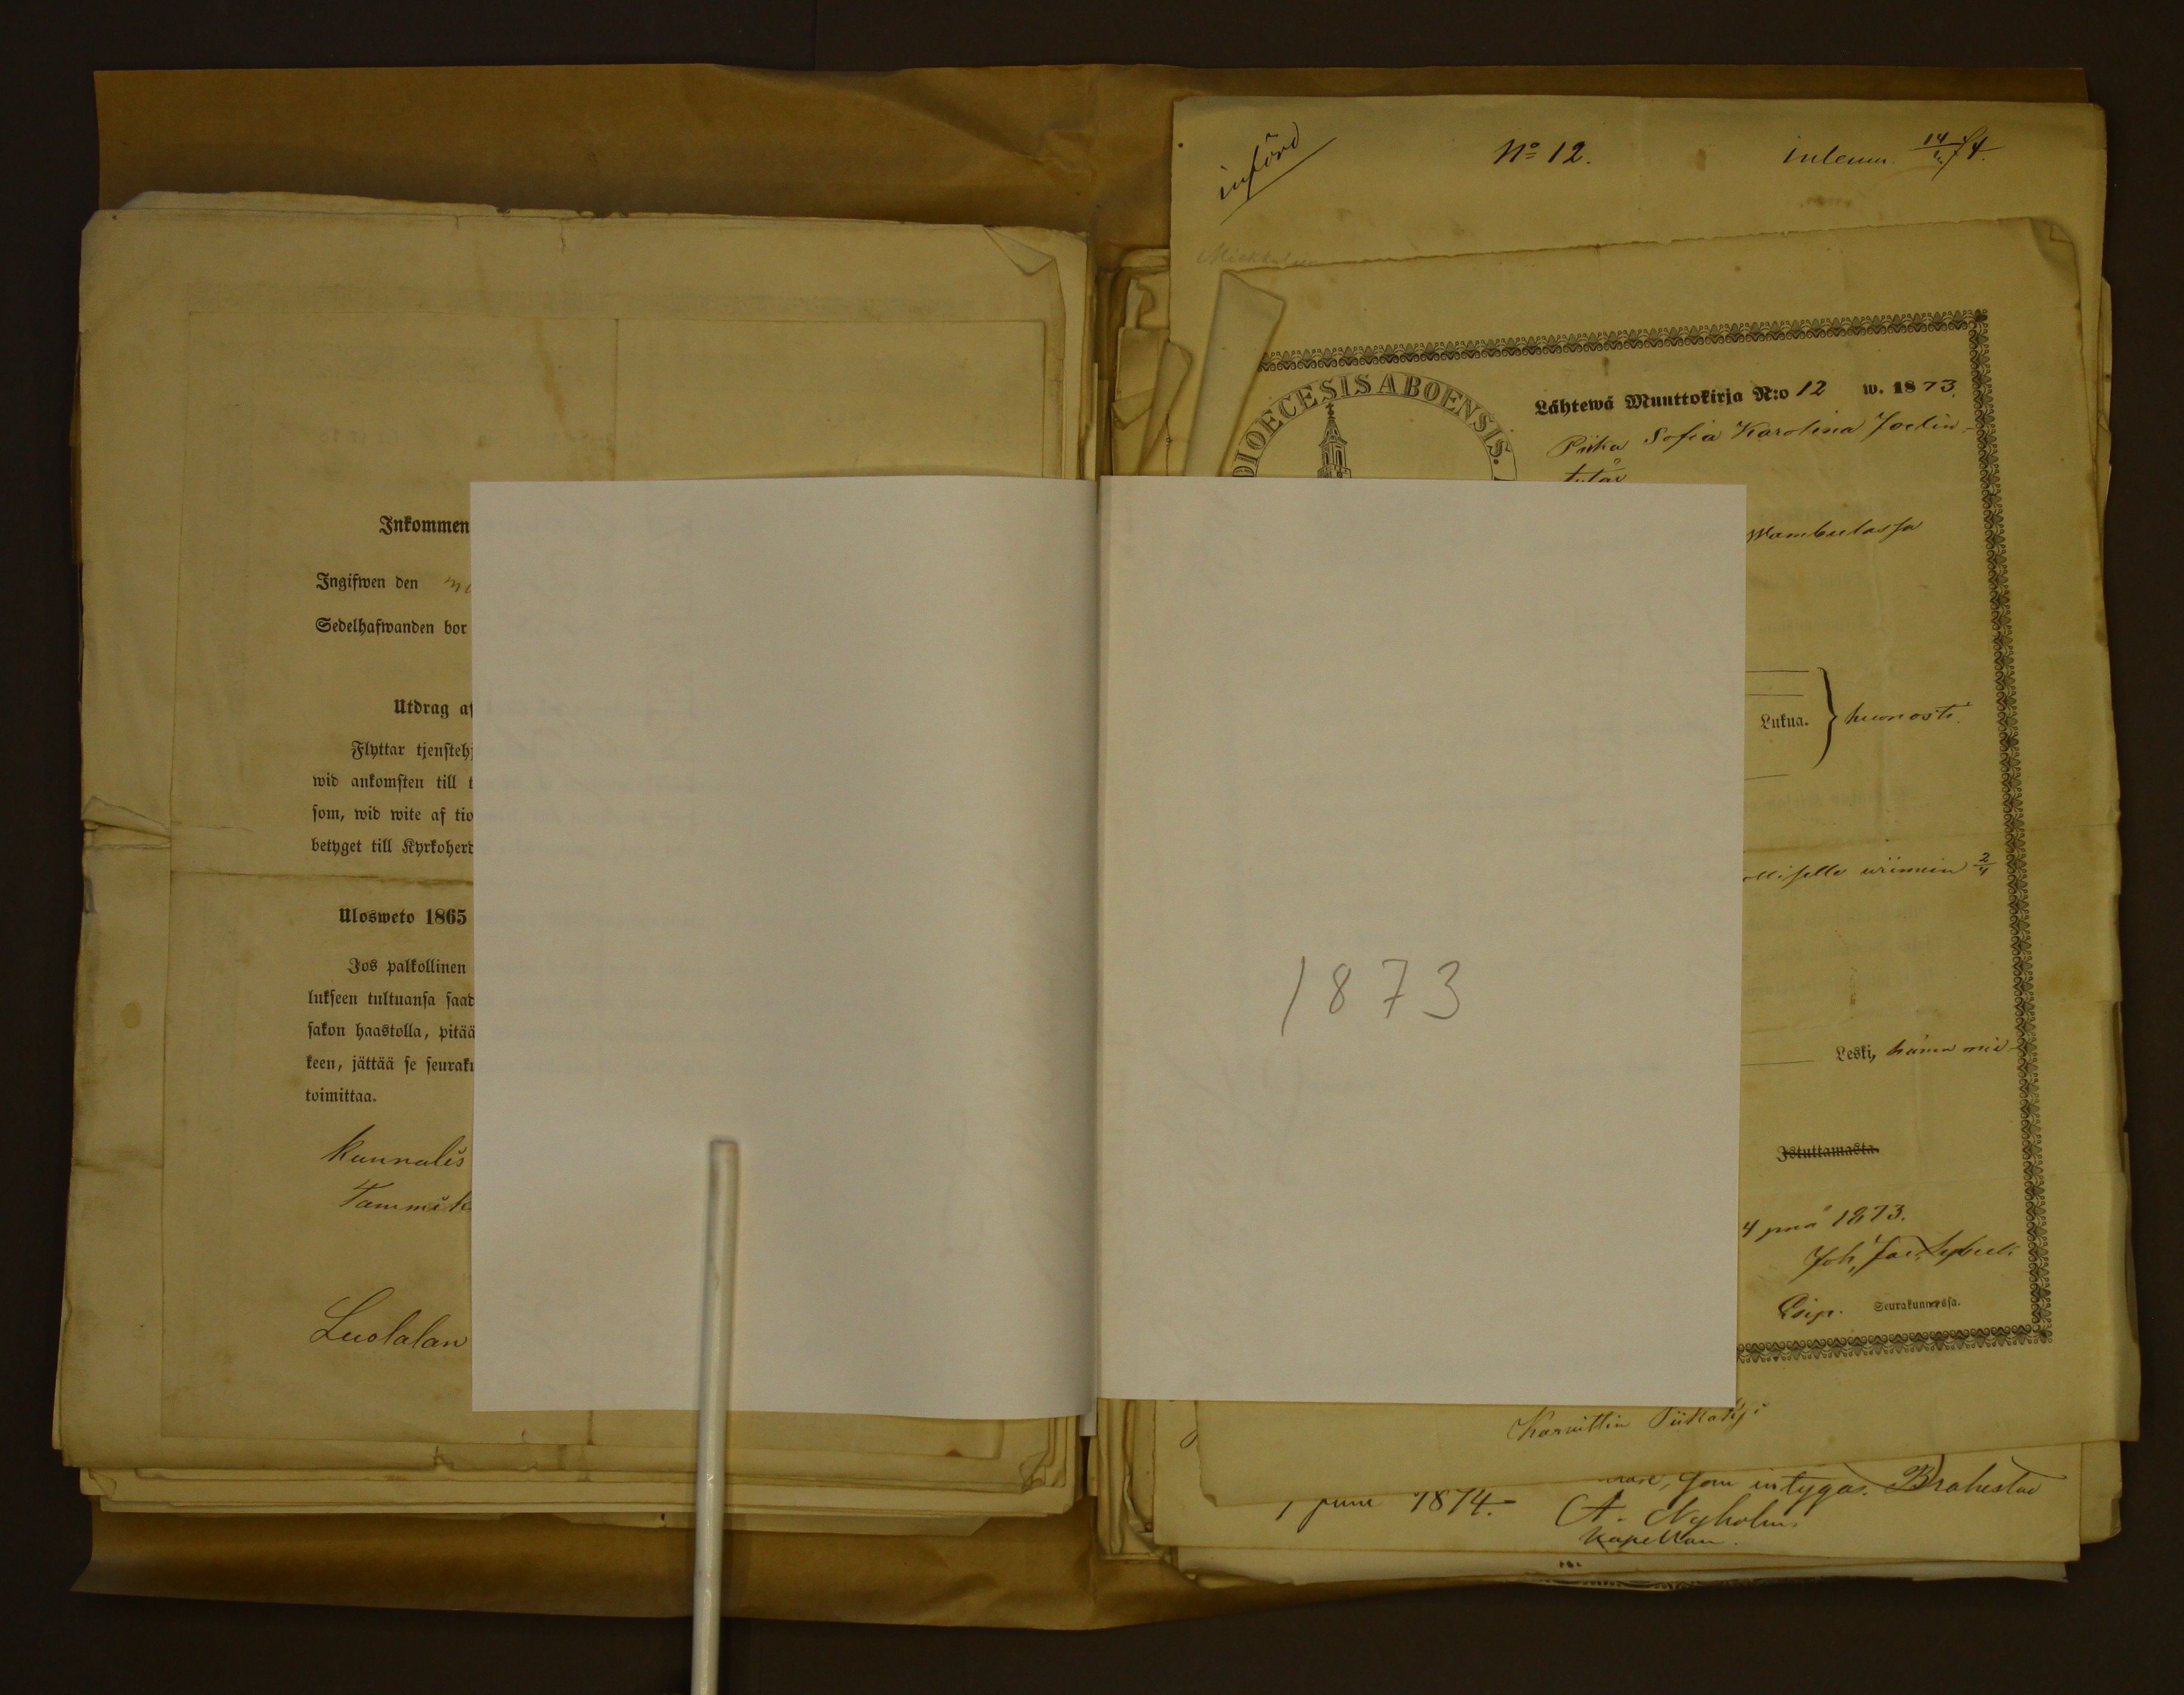 Inkommen
Ingifwen den
Sedelhafwanden bor
Utdrag af
Flyttar tjenstehj
wid ankomsten till t
som, wid wite af tio
betyget till Kyrkoherd
Ulosweto 1865
Jos palkollinen
lukseen tultuansa saad
sakon haastolla, pitää
keen, jättää se seuraku
toimittaa.
kunnalis
Tammik
Luolalan
1873
införd
No 12.
inlemn. 14/74.
DIOECESIS ABOENSIS.
Lähtewä Muuttokirja N:o 12 w. 1873.
Piika Sofia Karolina Joelin-
tytär
Wambulassa
Lukua. } huonosti.
wiimein 2/4
Leski,
Istuttamasta.
4 pnä 1873.
Joh,
Seurakunnassa.
1 juni 1874.
som intygas. Brahestad
A. Nyholm.
Kapellan.